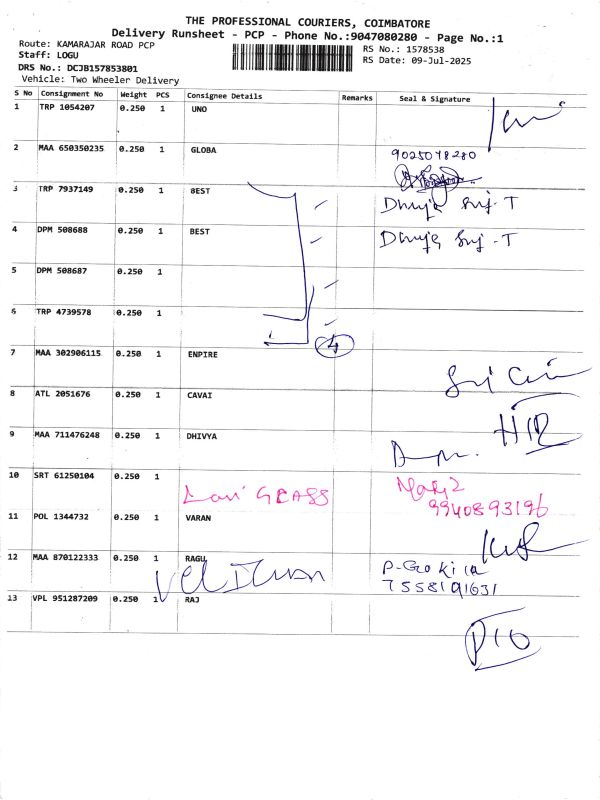 THE PROFESSIONAL COURIERS, COIMBATORE
Delivery Runsheet - PCP - Phone No.:9047080280 - Page No.:1
Route: KAMARAJAR ROAD PCP
RS No.: 1578538
Staff: LOGU
RS Date: 09-Jul-2025
DRS No.: DCJB157853801
Vehicle: Two Wheeler Delivery
S No Consignment No Weight PCS Consignee Details Remarks Seal & Signature
1 TRP 1054207 0.250 1 UNO
2 MAA 650350235 0.250 1 GLOBA 9025078280
3 TRP 7937149 0.250 1 BEST
4 DPM 508688 0.250 1 BEST
5 DPM 508687 0.250 1
6 TRP 4739578 0.250 1
4
7 MAA 302906115 0.250 1 ENPIRE
8 ATL 2051676 0.250 1 CAVAI
9 MAA 711476248 0.250 1 DHIVYA
10 SRT 61250104 0.250 1
9940893196
11 POL 1344732 0.250 1 VARAN
12 MAA 870122333 0.250 1 RAGU
7558191631
13 VPL 951287209 0.250 1 RAJ